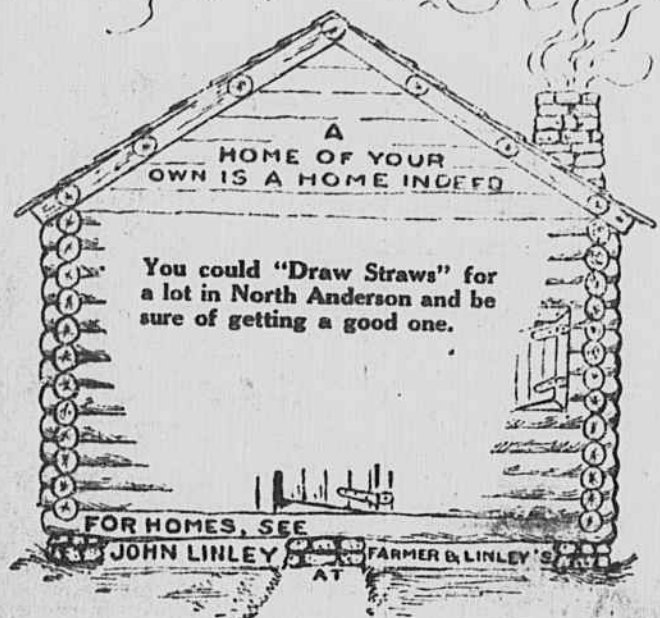 A
HOME OF YOUR
OWN IS A HOME INDEED
You could "Draw Straws" for
a lot in North Anderson and be
sure of getting a good one.
FOR HOMES, SEE
JOHN LINLEY
AT
FARMER & LINLEY'S